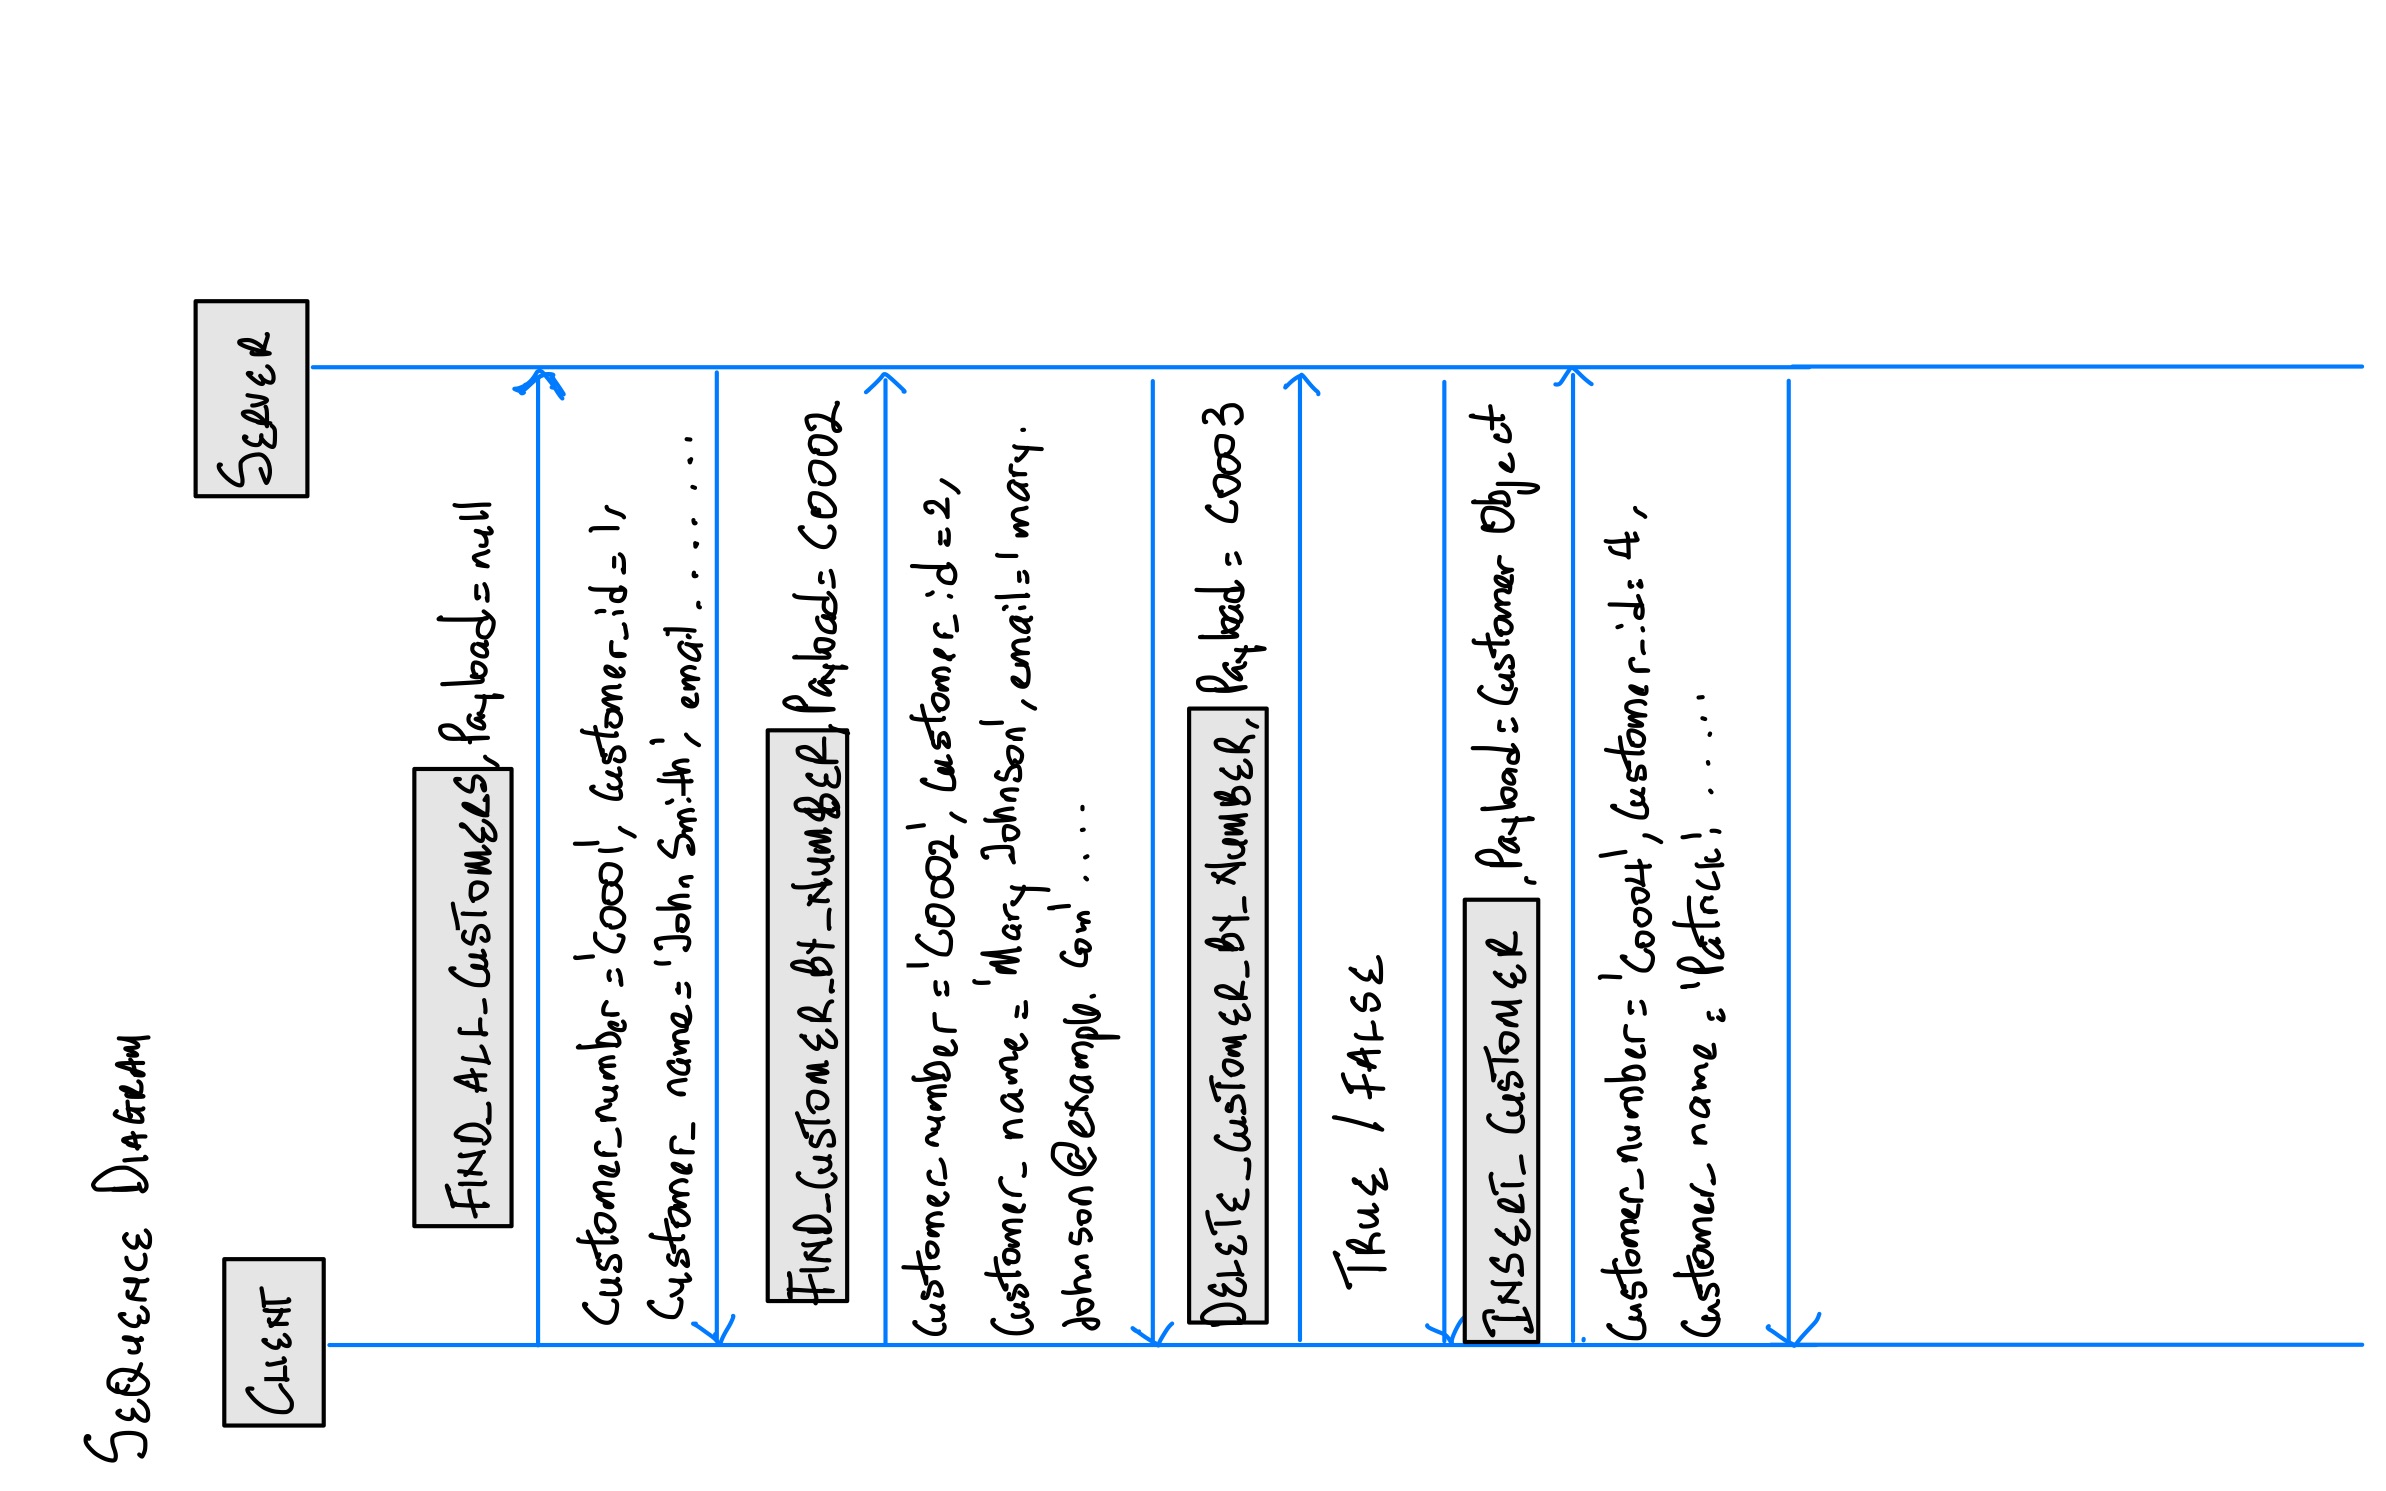 SEQUENCE DIAGRAM
CLIENT
SERVER
FIND_ALL_CUSTOMERS, Payload=null
Customer_number='C0001', Customer_id=1,
Customer_name='John Smith', email.......
FIND_CUSTOMER_BY_NUMBER, Payload=C0002
Customer_number='C0002', Customer_id=2,
Customer_name='Mary Johnson', email='mary.
Johnson@example.com'....
DELETE_CUSTOMER_BY_NUMBER, Payload=C0003
TRUE / FALSE
INSERT_CUSTOMER, Payload=Customer Object
Customer_number='C0004', Customer_id=4,
Customer_name='Patrick', .....